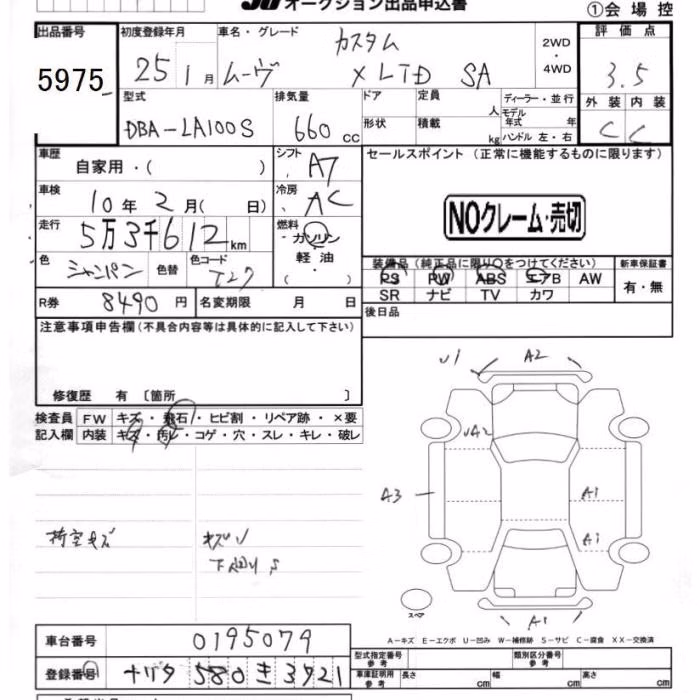 オークション出品申込書
①会場控
出品番号
5975
初度登録年月
25 1月
車名・グレード
ムーヴ
カスタム
X LTD SA
2WD
・
4WD
評価点
3.5
外装 内装
C C
型式
DBA-LA100S
排気量
660 cc
ドア 定員 人
形状 積載 kg
ディーラー・並行
モデル年式 年
ハンドル 左・右
車歴
自家用・( )
シフト
A7
セールスポイント (正常に機能するものに限ります)
NOクレーム・売切
車検
10年2月( 日)
冷房
AC
走行
5万3千612km
燃料
ガソリン
軽油
( )
色
シャンパン
色替
色コード
T27
装備品 (純正品に限り○をつけてください)
PS PW ABS エアB AW
SR ナビ TV カワ
新車保証書
有・無
R券 8490円 名変期限 月 日
後日品
注意事項申告欄(不具合内容等は具体的に記入して下さい)
修復歴 有 〔箇所 〕
検査員記入欄
FW キズ・飛石・ヒビ割・リペア跡・×要
内装 キズ・汚レ・コゲ・穴・スレ・キレ・破レ
荷室キズ
キズU
下回りS
U1
A2
UA2
A3
A1
A1
A1
スペア
A-キズ E-エクボ U-凹み W-補修跡 S-サビ C-腐食 XX-交換済
車台番号 0195079
登録番号 ナゴヤ 580 き 3921
型式指定番号 参考
類別区分番号 参考
車庫証明用 参考 長さ cm 幅 cm 高さ cm